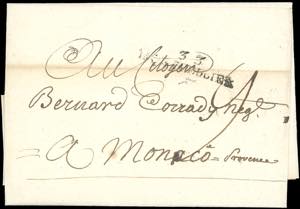 33
MONTPELLIER
Au Citoyen
Bernard Corrady Negt.
= A Monaco = Provence